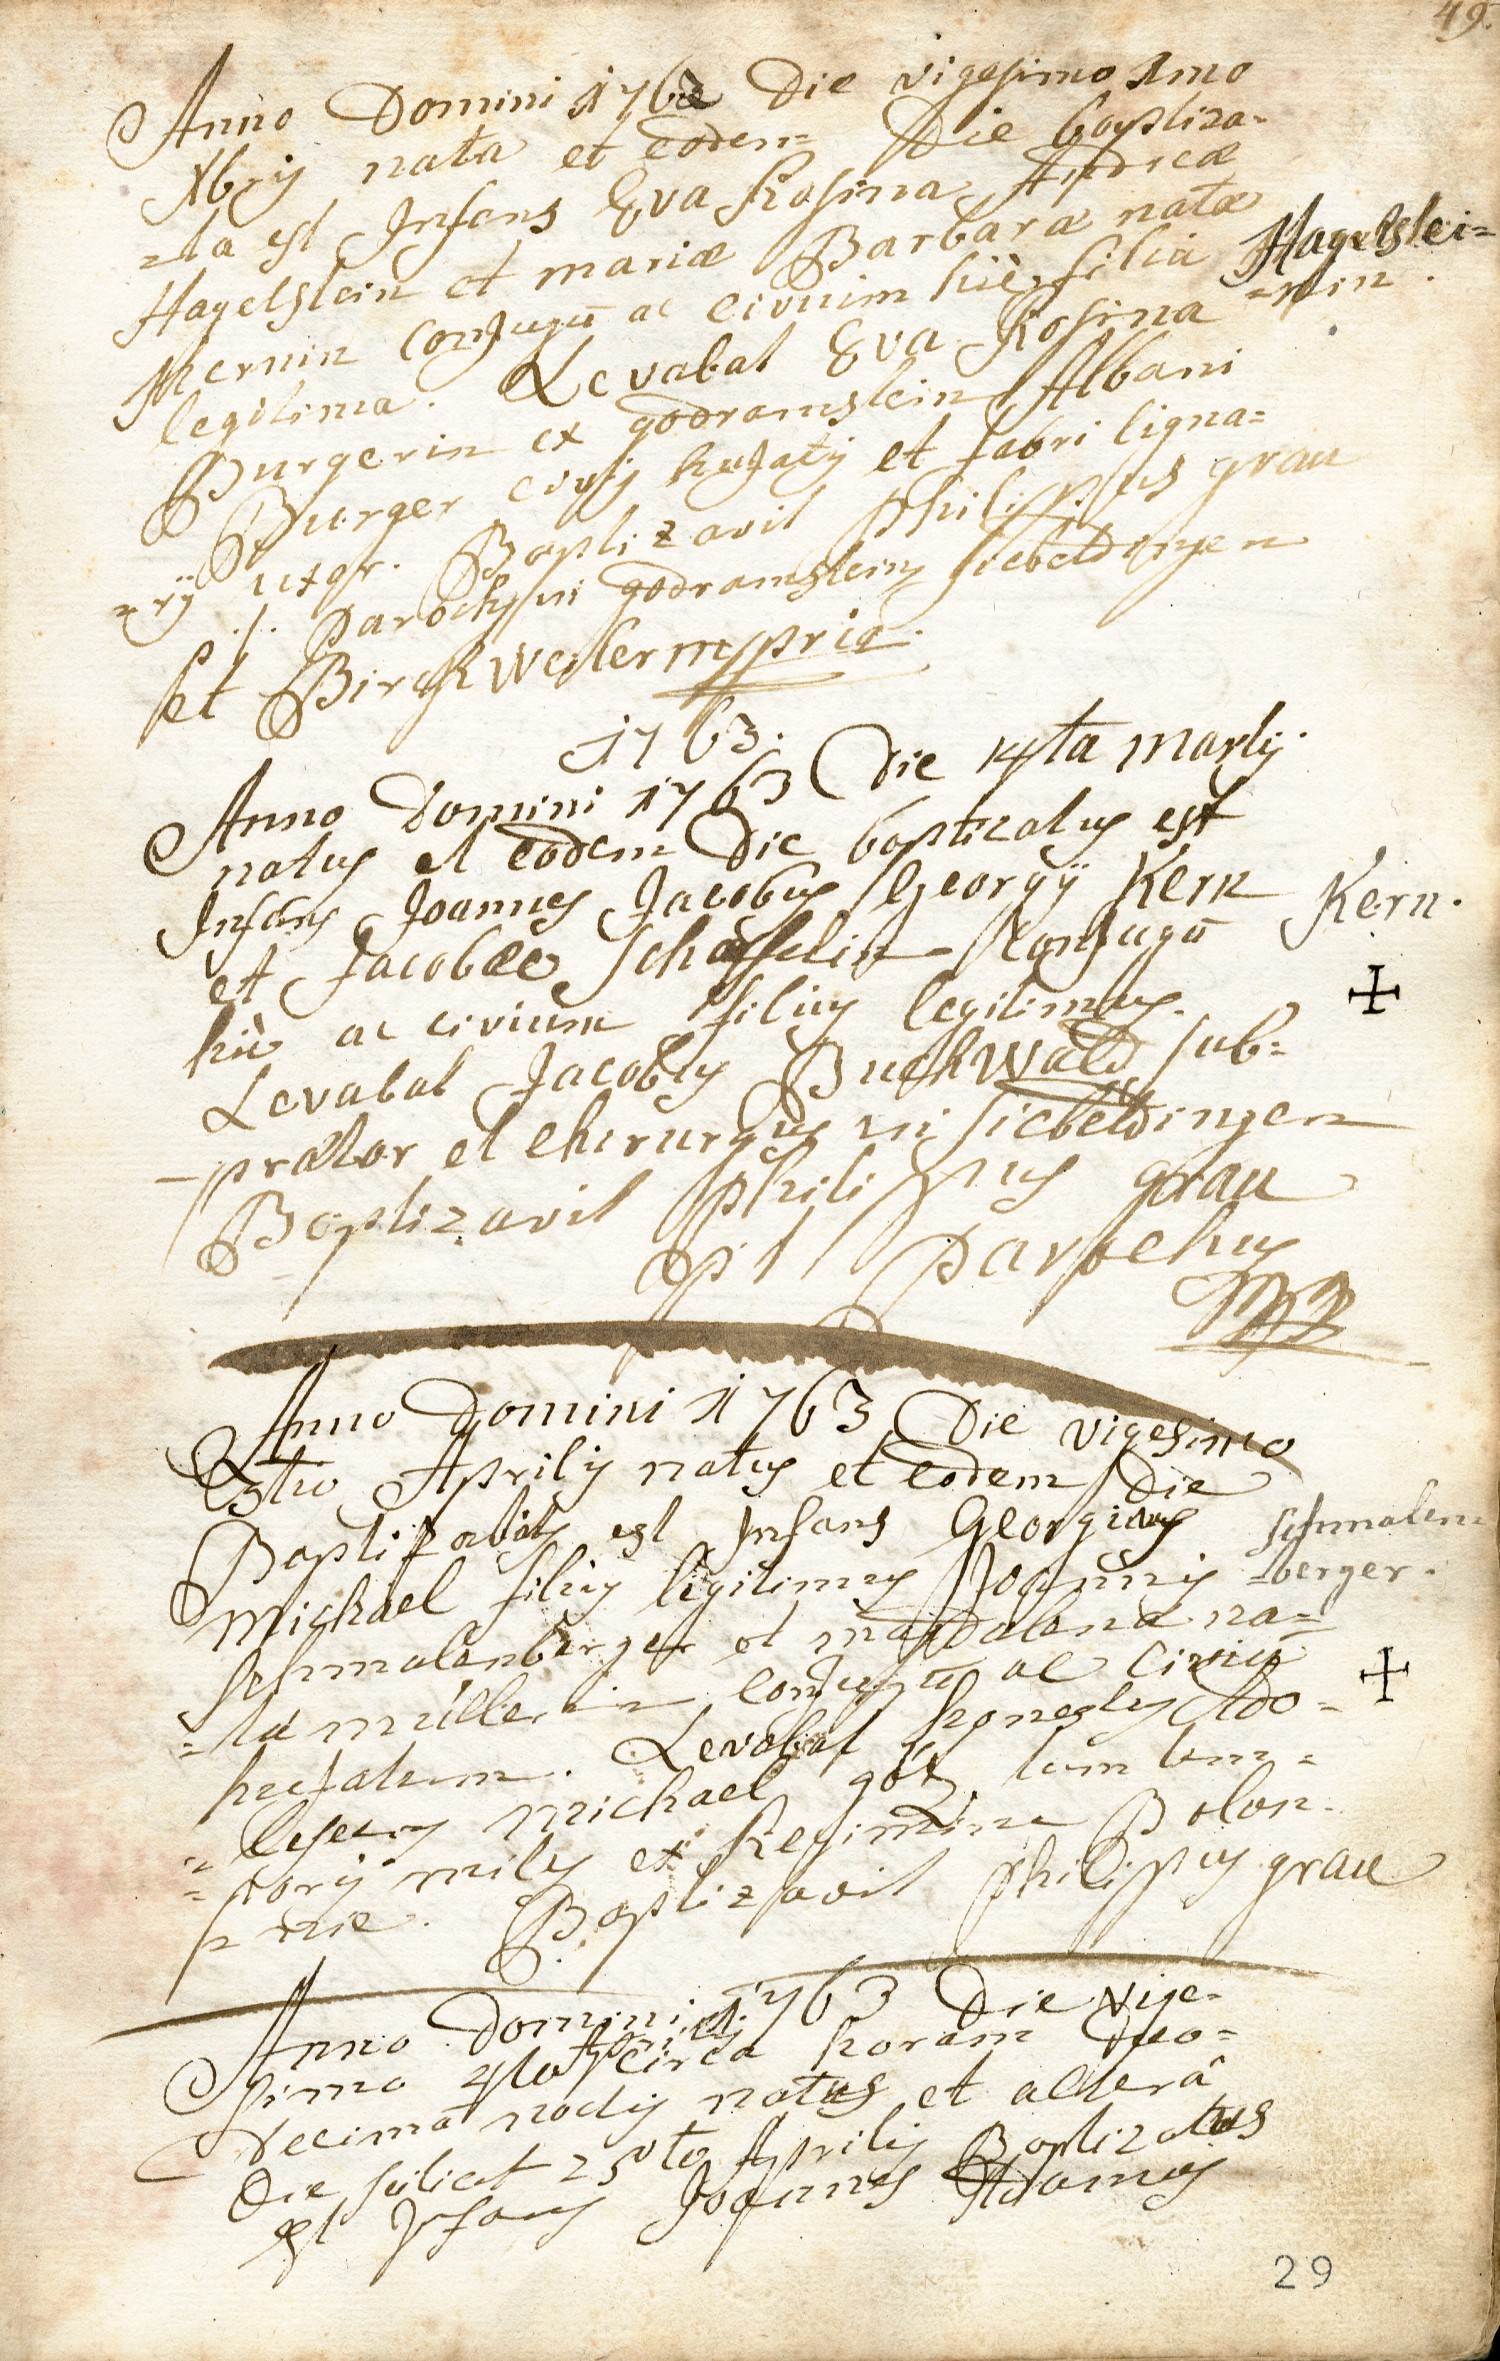 49.
Anno Domini 1762 Die vigesimo 1mo
Xbris nata et eodem Die baptiza-
=ta est Infans Eva Rosina Andreæ
Hagelstein et mariæ Barbaræ natæ
Hagelstei=
=nin.
Kernin Conjugū ac civium hiè filia
legitima. Levabat Eva Rosina
Burgerin ex godramstein Albani
Burger civis hujatis et fabri ligna=
=rÿ uxor. Baptizavit philippus grau
p.t. parochus in godramstein siebeldingen
et BirckWeiler mppria.
1763.
Anno Domini 1763 Die 14ta martij.
natus et eodem Die baptizatus est
Infans Joannes Jacobus Georgÿ Kern
Kern.
et Jacobææ Schäffelin Conjugū
hiè ac civium filius legitimus.
Levabat Jacobus BuchWald sub=
prætor et chirurgus in siebeldingen
Baptizavit philippus grau
p t parochus
mpp
Anno Domini 1763 Die vigesimo
3tio Aprilis natus et eodem Die
Baptizatus est Infans Georgius
schmalen=
=berger.
Michael filius legitimus Joannis
schmalenberger et magdalena na=
=ta müllerin conjugū ac civiū
hujatum. Levabat honestus Ado=
=lescens michael götz tum tem=
=poris miles ex Regimine Bolon=
=nie. Baptizavit philippus grau
Anno Domini 1763 Die vige-
simo 4to Aprilis circa horam duo=
decimā noctis natus et alterâ
Die scilicet 25to Aprilis Baptizatus
est Infans Joannes Adamus
29